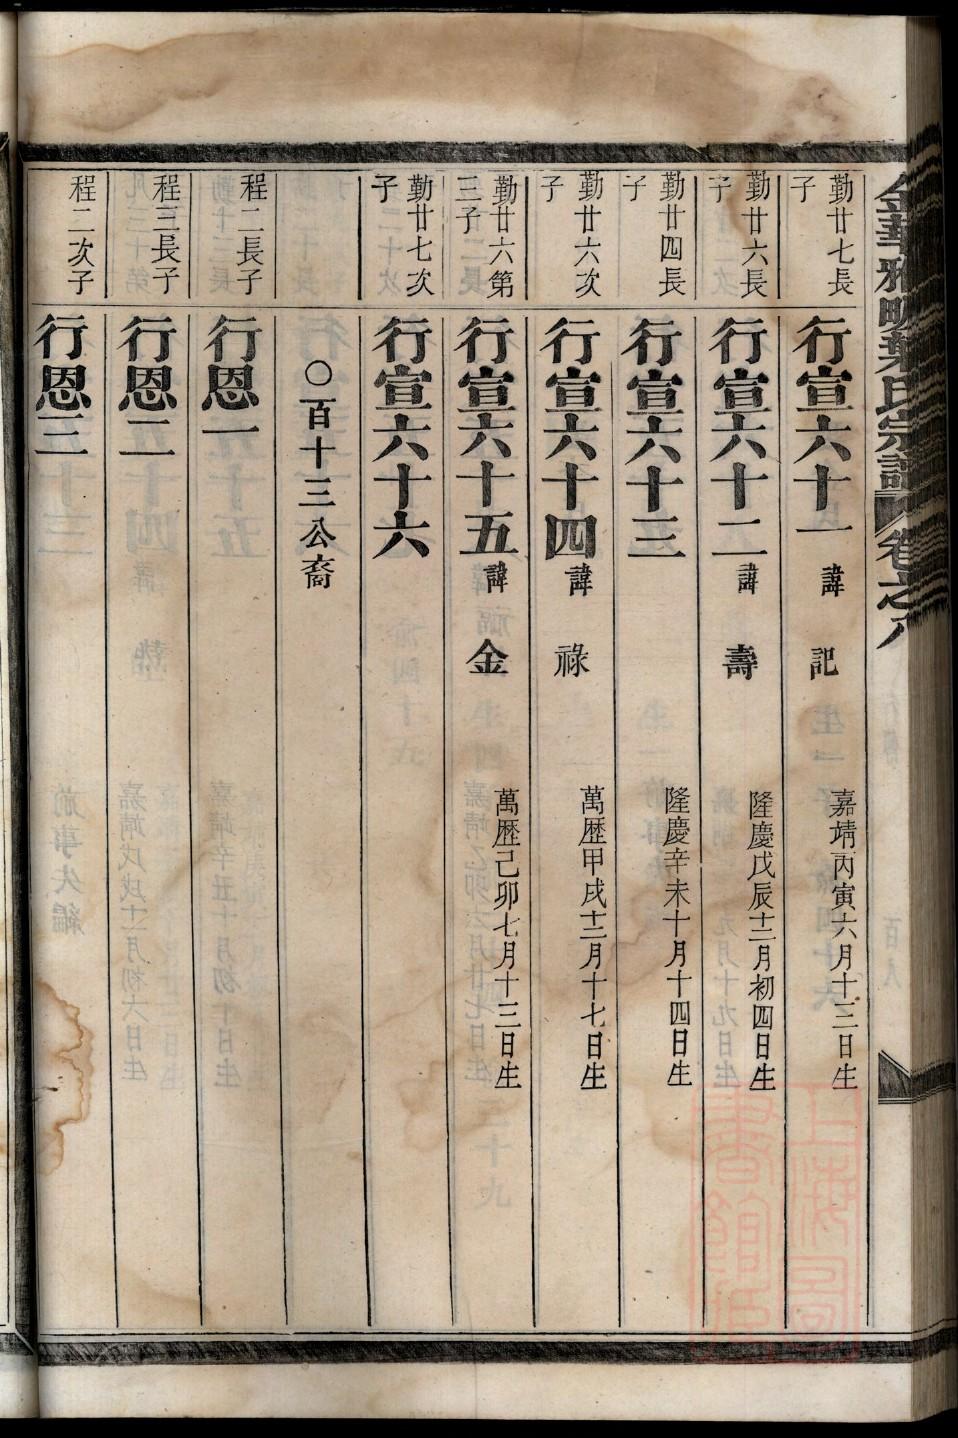 金華雅畈葉氏宗譜 卷之八
勤廿七長子
行宣六十一 諱 記 嘉靖丙寅六月十三日生
勤廿六長子
行宣六十二 諱 壽 隆慶戊辰十二月初四日生
勤廿四長子
行宣六十三 隆慶辛未十月十四日生
勤廿六次子
行宣六十四 諱 祿 萬歷甲戌十二月十七日生
勤廿六第三子
行宣六十五 諱 金 萬歷己卯七月十三日生
勤廿七次子
行宣六十六
○百十三公裔
程二長子
行恩一
程三長子
行恩二
程二次子
行恩三